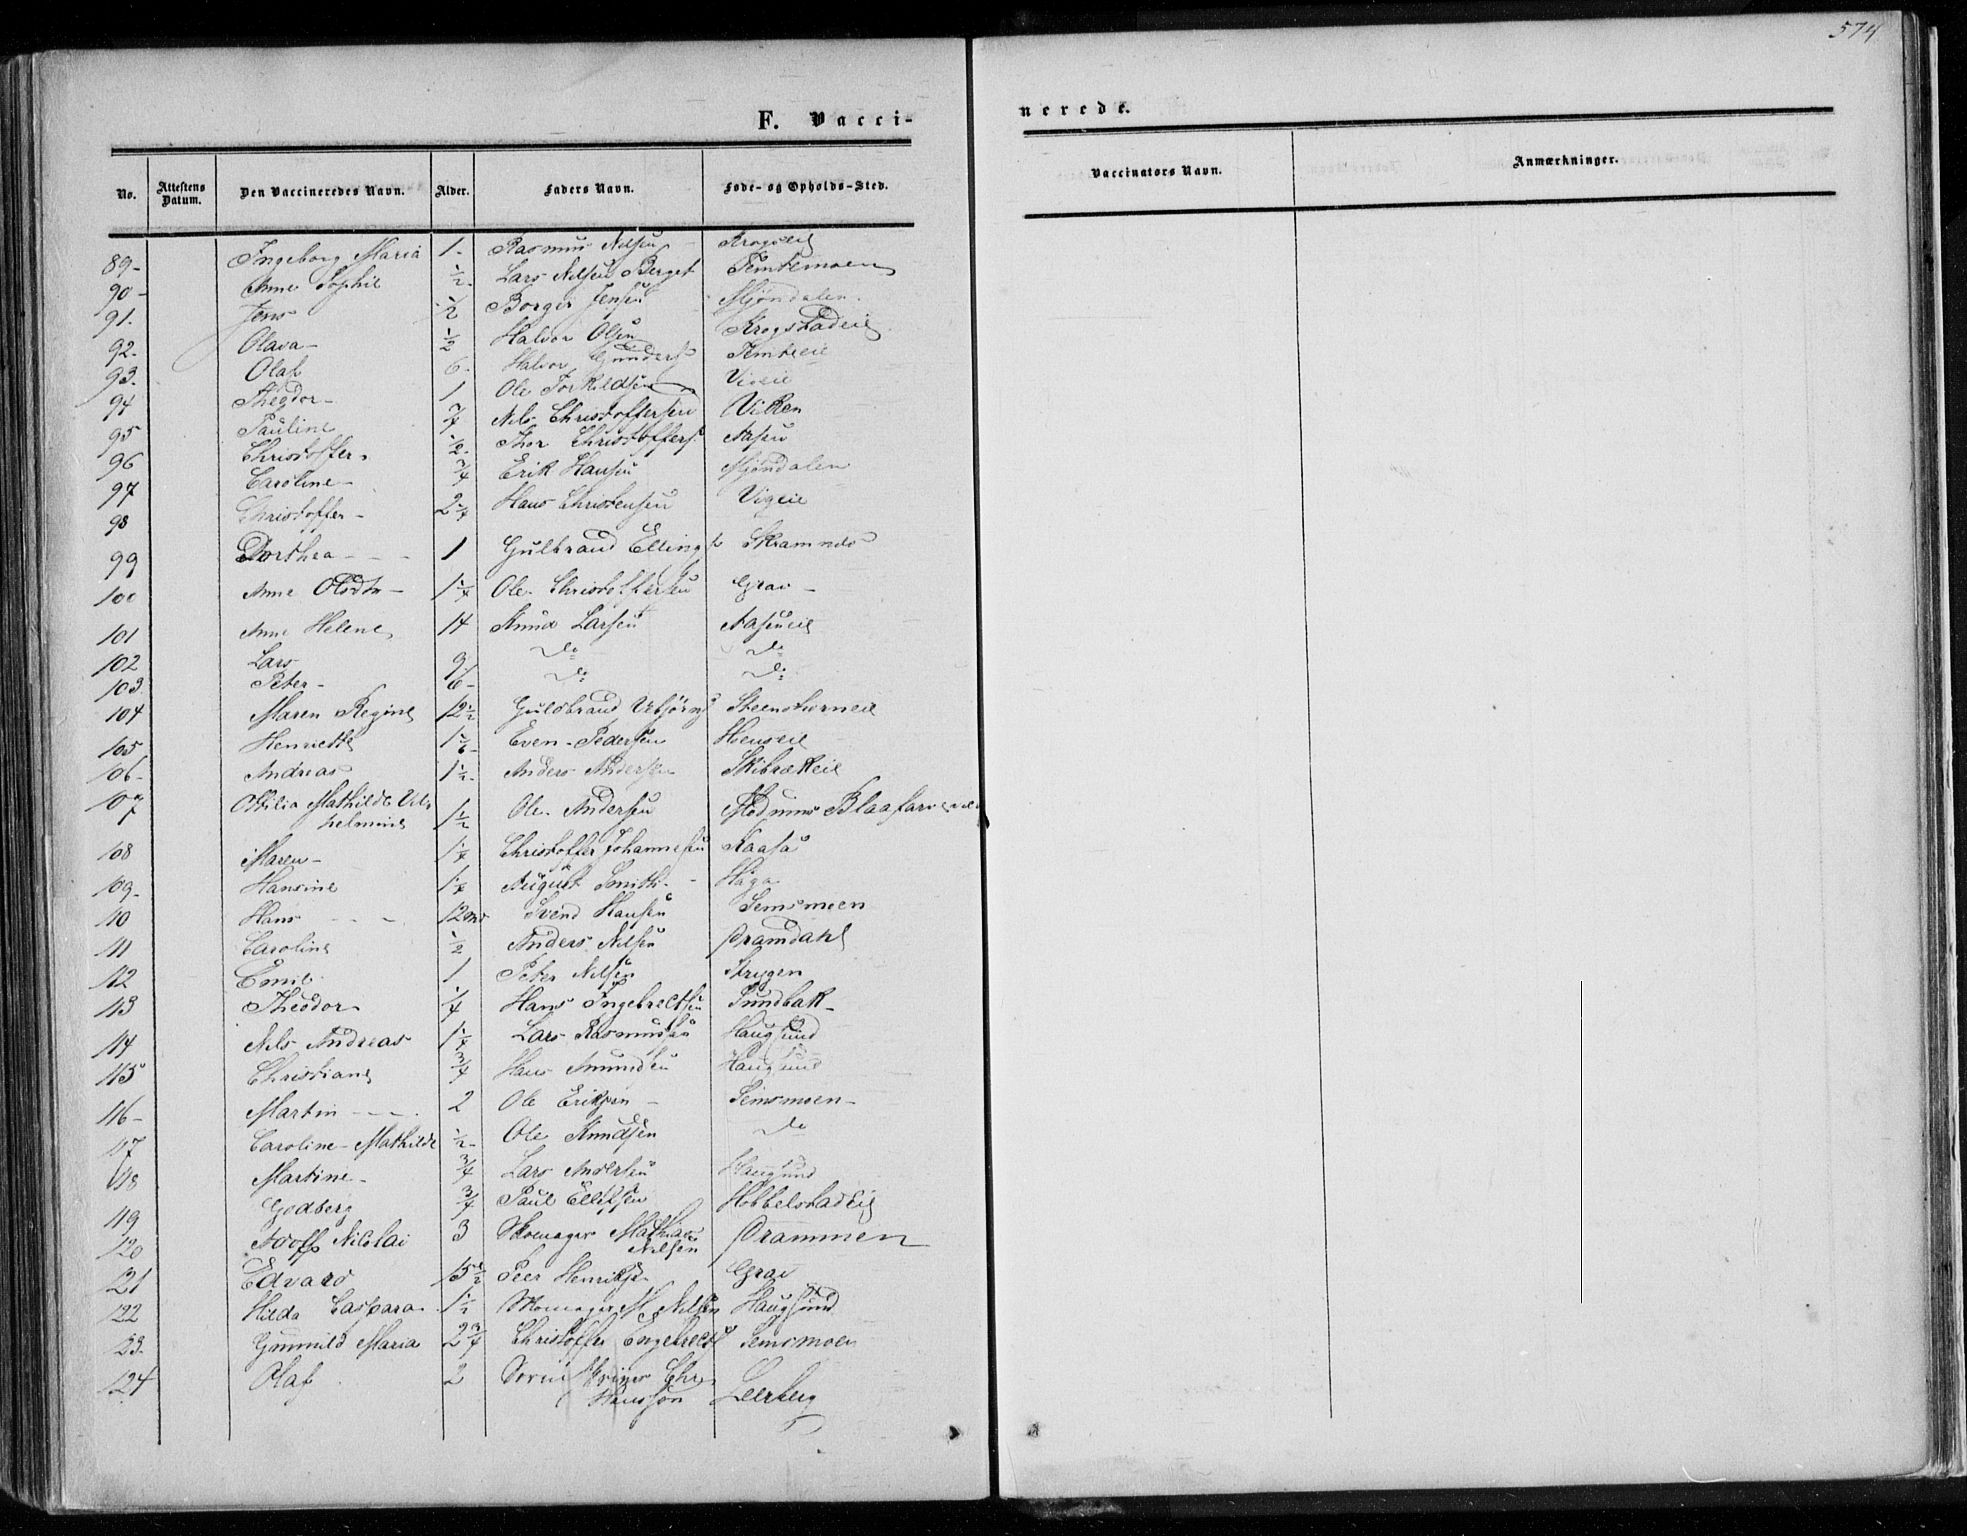 574
F. Vacci-
nerede.
No. Attestens Datum. Den Vaccineredes Navn. Alder. Faders Navn. Føde- og Opholds-Sted. Vaccinators Navn. Anmærkninger.
89- Ingeborg Maria 1- Rasmus Nilsen
90- Anne Sophie ½ Lars Nilsen Berget Temtemoen
91. Jens ½ Borger Jensen Mjøndalen
92. Olava- ½ Halvor Olsen Krogstadeie
93. Olaf 6- Halvor Temteeie
94 Theodor- 1 Ole Torkildsen Viveeie
95 Pauline ¾ Nils Christoffersen Viken
96 Christoffer ½ Thor Christoffers Aasen
97 Caroline- ¾ Erik Hansen Mjøndalen
98 Christoffer- 2¼ Hans Christensen Vigeie
99 Dorthea - - - 1 Gulbrand Ellings
100 Anne 1¼ Ole Christoffersen Grav -
101 Anne Helene 14 Knud Larsen Aaseneie
102 Lars 9 do do
103 Peter- 6- do do
104 Maren Regine 12½ Guldbrand Steenshorneie
105 Henriette Even Pedersen
106- Andreas 1½ Anders Andersen Skibrækeie
107 Ottilia Mathilde Vil-
helmine 1½ Ole Andersen Modums Blaafarve
108 Maren- 1¼ Christoffer Johannesen Kaasa
109- Hansine August Smith - Haga
110 Hans - - - 12 Svend Hansen Semsmoen
111 Caroline ½ Anders Nilsen Dramdahl
112 Emil 1 Peter Nilsen Strygen
113 Theodor- ¼ Hans Ingebrectsen Sundbak-
114 Nils Andreas 1¼ Lars Rasmussen Haugsund
115 Christiane ¾ Hans Amundsen Haugsund
116- Martin - - - 2 Ole Eriksen - Semsmoen-
117 Caroline Mathilde ½- Ole Knudsen do
118 Martine- ¾ Lars Andersen Haugsund
119 Godberg ¾ Paul Ellefsen Hobbelstadeie
120 Adolf Nicolai 3 Skomager Mathias
Nilsen Drammen
121 Edvard Peer Henriks Grav
122 Hilda Caspara 1½ Skomager M. Nilsen Haugsund
123. Gunnild Maria 2¾ Christoffer Engebrects Semsmoen
124 Olaf 2 Søren Chr
Hanssøn Leerberg